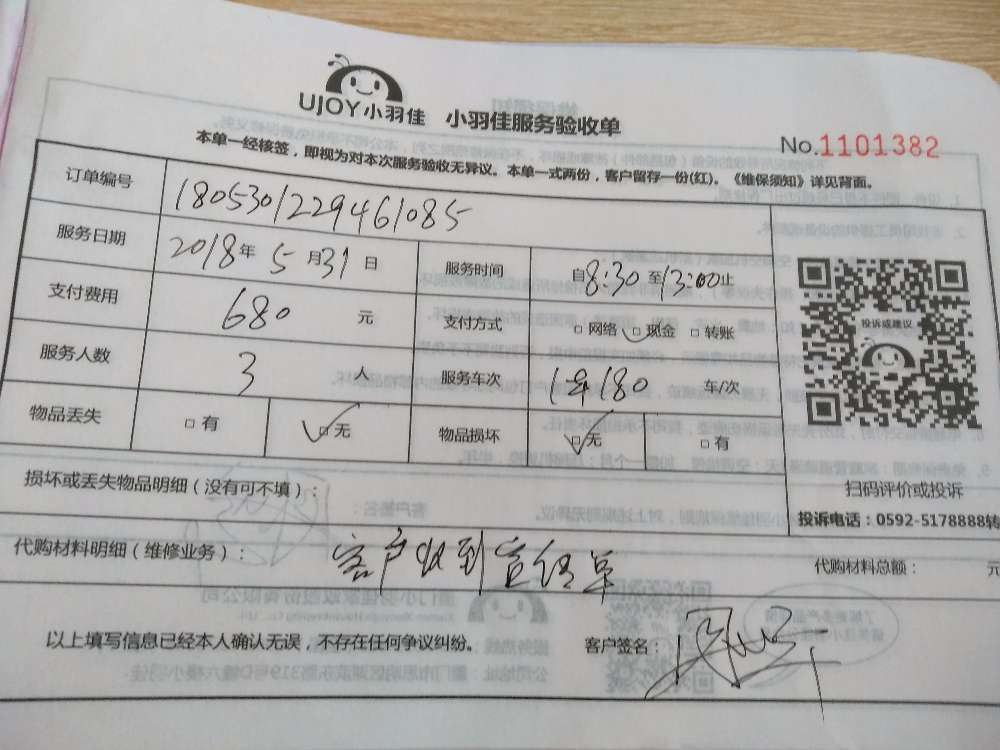 UJOY小羽佳 小羽佳服务验收单
No.1101382
本单一经核签，即视为对本次服务验收无异议。本单一式两份，客户留存一份(红)。《维保须知》详见背面。
订单编号 1805301229461085
服务日期 2018年5月31日 服务时间 自8:30至13:00止
支付费用 680 元 支付方式 □网络 □现金 □转账
服务人数 3 人 服务车次 180 车/次
物品丢失 □有 □无 物品损坏 □无 □有
投诉或建议
扫码评价或投诉
投诉电话：0592-5178888转
损坏或丢失物品明细（没有可不填）：
代购材料明细（维修业务）： 客户收到宣传单 代购材料总额： 元
以上填写信息已经本人确认无误，不存在任何争议纠纷。 客户签名：